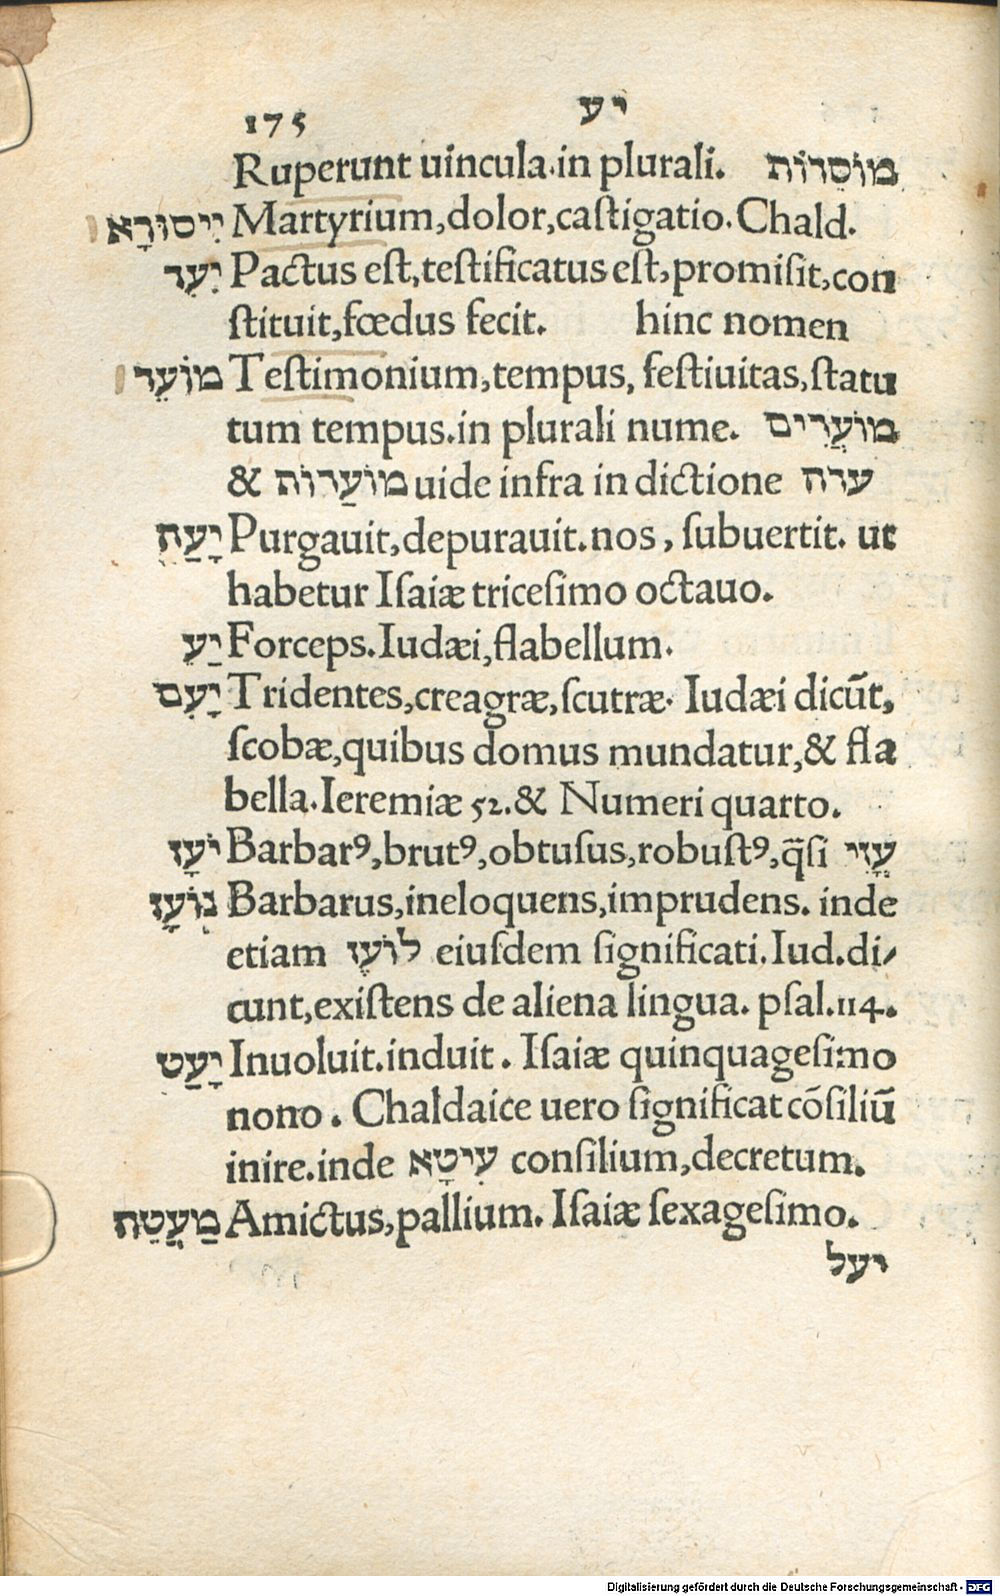 175 יע
Ruperunt uincula.in plurali. מוֹסֵרוֹת
יִיסוּרָא Martyrium,dolor,castigatio.Chald.
יָעַד Pactus est,testificatus est,promisit,con
stituit,fœdus fecit. hinc nomen
מוֹעֵד Testimonium,tempus, festiuitas,statu
tum tempus.in plurali nume. מוֹעֲדִים
& מוֹעַדוֹת uide infra in dictione עדה
יָעַה Purgauit,depurauit.nos, subuertit. ut
habetur Isaiæ tricesimo octauo.
יַע Forceps.Iudæi,flabellum.
יָעִם Tridentes,creagræ,scutræ. Iudæi dicūt,
scobæ,quibus domus mundatur,& fla
bella.Ieremiæ 52.& Numeri quarto.
יֹעָז Barbarꝰ,brutꝰ,obtusus,robustꝰ,q̄si עָזִי
נוֹעָז Barbarus,ineloquens,imprudens. inde
etiam לוֹעֵז eiusdem significati.Iud.di/
cunt,existens de aliena lingua. psal.114.
יָעַט Inuoluit.induit. Isaiæ quinquagesimo
nono. Chaldaice uero significat cōsiliū
inire.inde עִיטָא consilium,decretum.
מַעֲטֵה Amictus,pallium. Isaiæ sexagesimo.
יעל
Digitalisierung gefördert durch die Deutsche Forschungsgemeinschaft - DFG